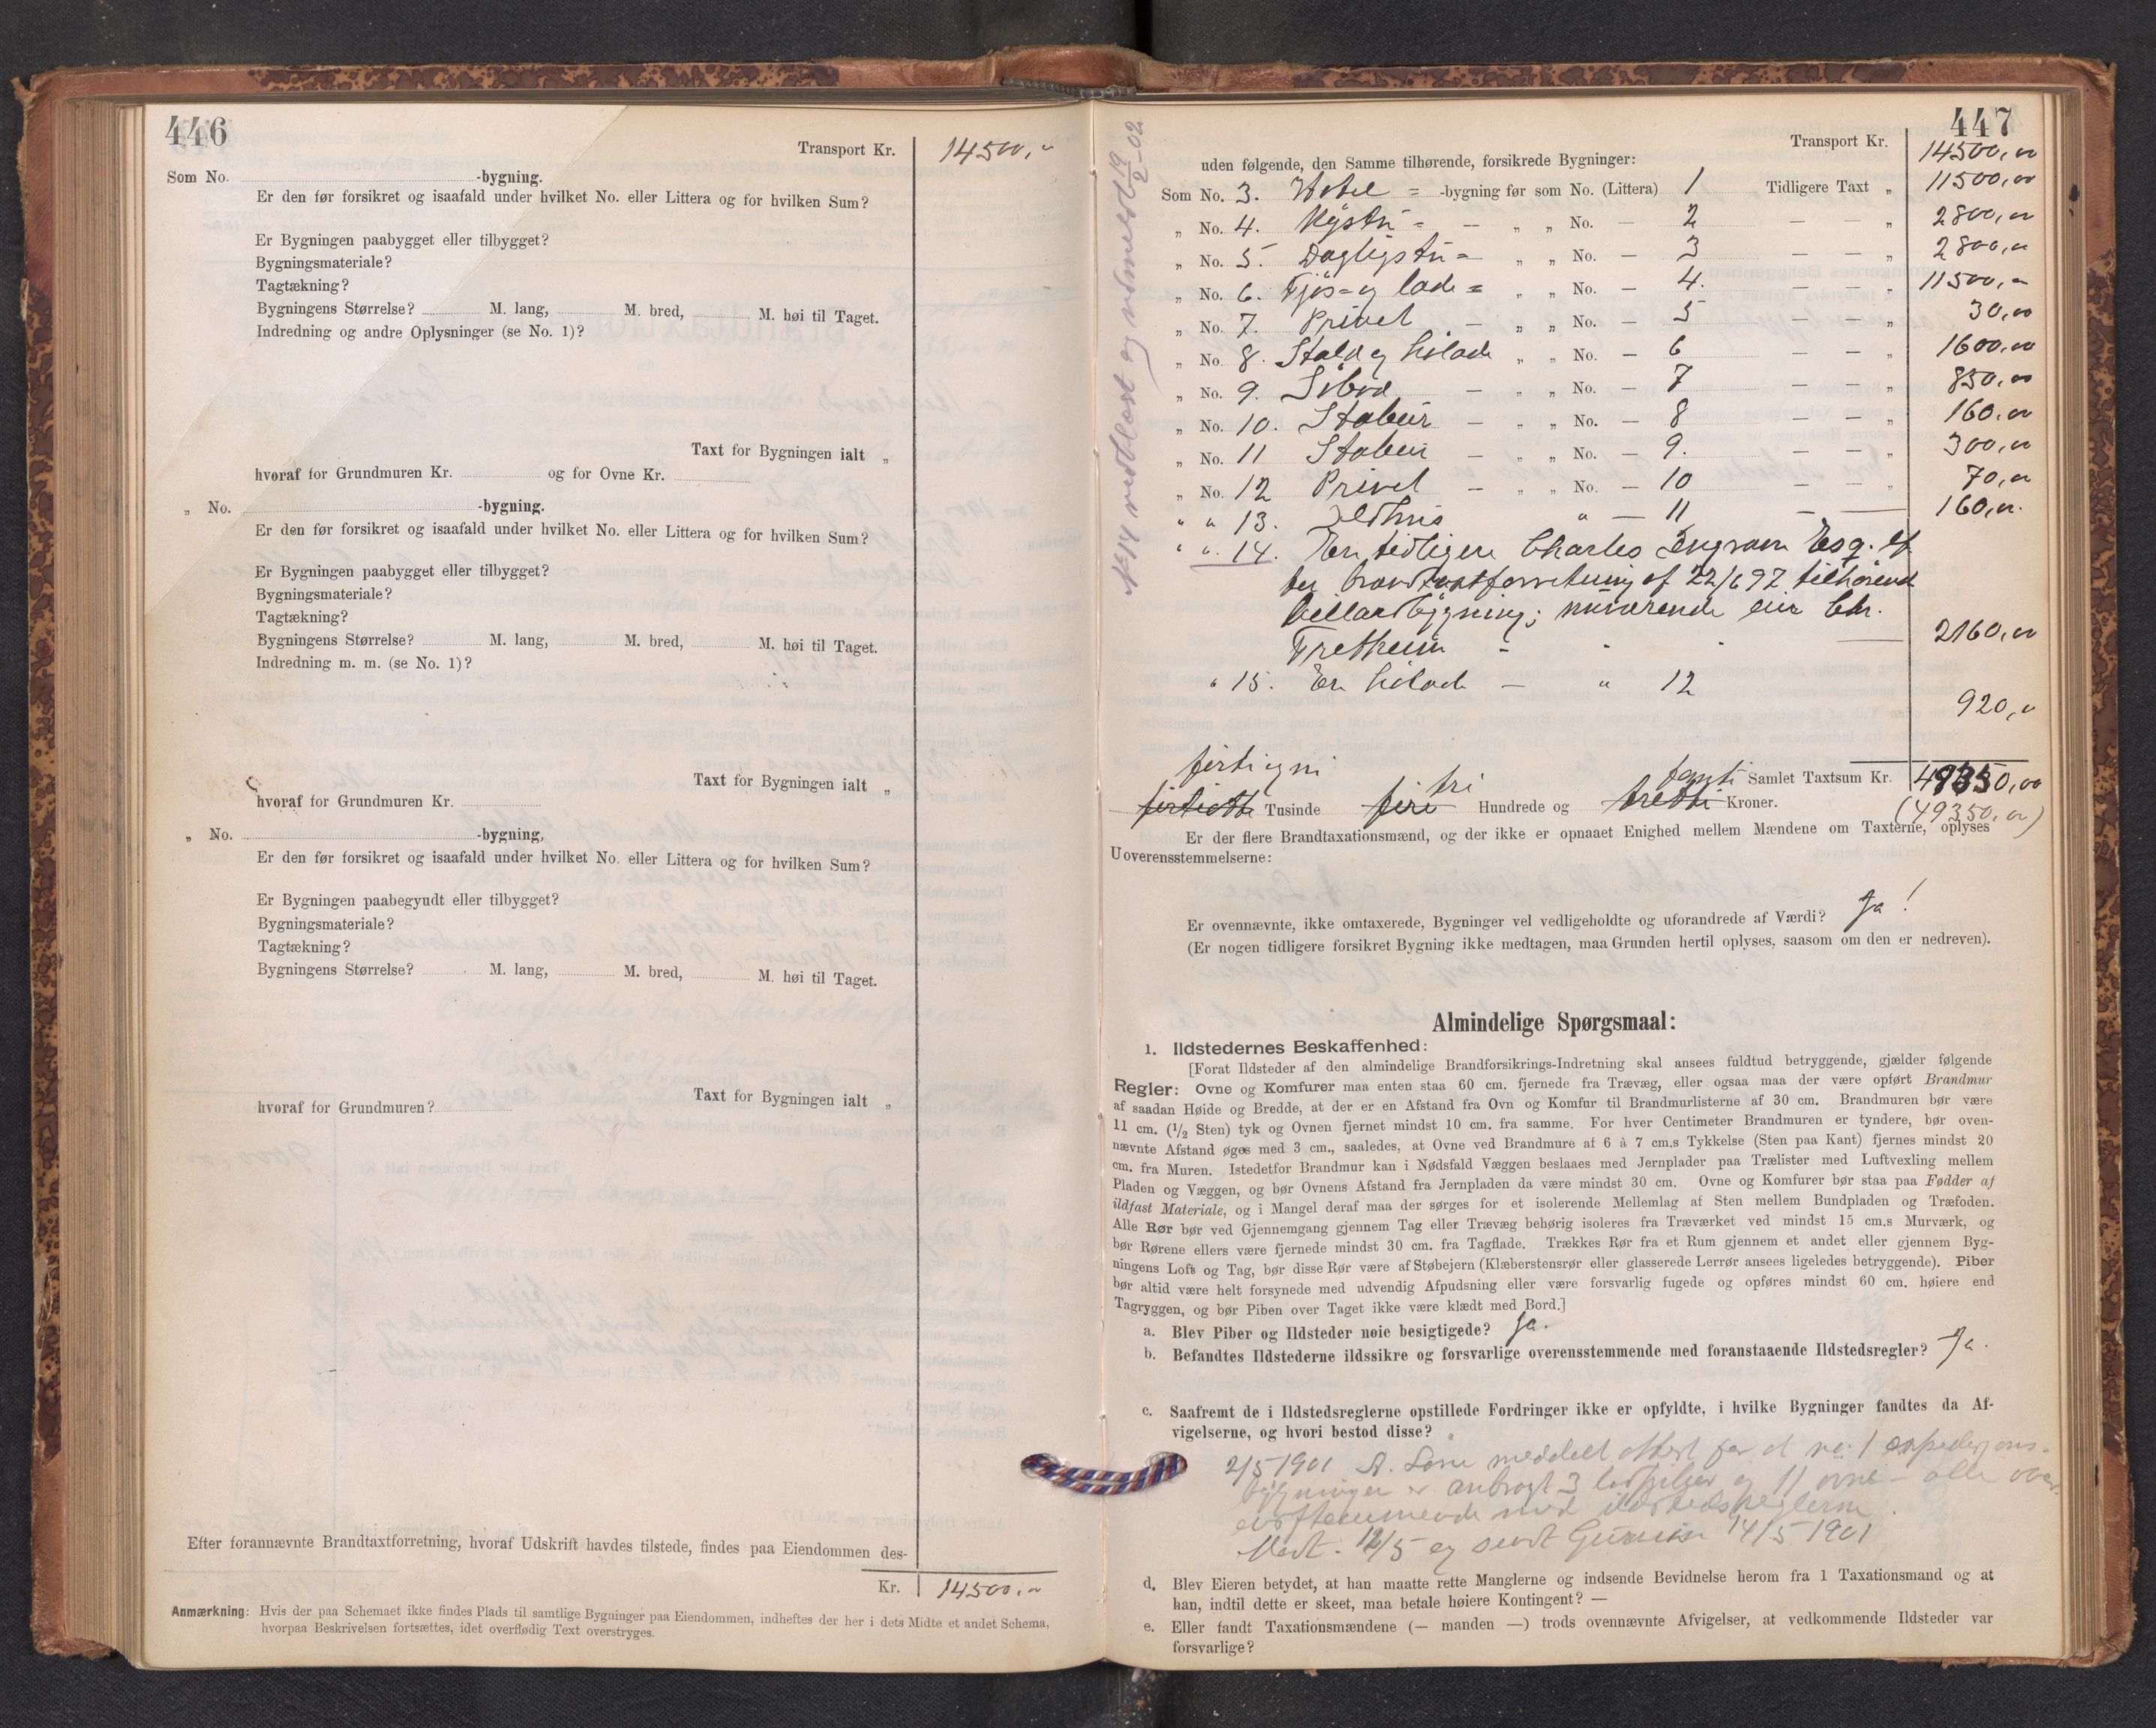 446
Transport Kr. 14500,"
Som No. -bygning.
Er den før forsikret og isaafald under hvilket No. eller Littera og for hvilken Sum?
Er Bygningen paabygget eller tilbygget?
Bygningsmateriale?
Tagtækning?
Bygningens Størrelse? M. lang, M. bred, M. høi til Taget.
Indredning og andre Oplysninger (se No. 1)?
Taxt for Bygningen ialt "
hvoraf for Grundmuren Kr. og for Ovne Kr.
" No. -bygning.
Er den før forsikret og isaafald under hvilket No. eller Littera og for hvilken Sum?
Er Bygningen paabygget eller tilbygget?
Bygningsmateriale?
Tagtækning?
Bygningens Størrelse? M. lang, M. bred, M. høi til Taget.
Indredning m. m. (se No. 1)?
Taxt for Bygningen ialt "
hvoraf for Grundmuren Kr.
" No. -bygning,
Er den før forsikret og isaafald under hvilket No. eller Littera og for hvilken Sum?
Er Bygningen paabegyudt eller tilbygget?
Bygningsmateriale?
Tagtækning?
Bygningens Størrelse? M. lang, M. bred, M. høi til Taget.
Taxt for Bygningen ialt "
hvoraf for Grundmuren?
Efter forannævnte Brandtaxtforretning, hvoraf Udskrift havdes tilstede, findes paa Eiendommen des-
Kr. 14500,"
Anmærkning: Hvis der paa Schemaet ikke findes Plads til samtlige Bygninger paa Eiendommen, indheftes der her i dets Midte et andet Schema,
hvorpaa Beskrivelsen fortsættes, idet overflødig Text overstryges.
447
Transport Kr. 14500,00
uden følgende, den Samme tilhørende, forsikrede Bygninger:
Som No. 3. Hotel = -bygning før som No. (Littera) 1 Tidligere Taxt " 11500,00
" No. 4. Nystu = — " " No. — 2 — — " 2800,00
" No. 5. Dagligstu = " " No. — 3 — — " 2800,00
" No. 6. Fjøs= og lade = " " No. — 4. — — " 11500,00
" No. 7. Privet — " " No. — 5 — — " 30,00
" No. 8. Stald og hölade " " No. — 6 — — " 1600,00
" No. 9. Söbod — " " No. — 7 — — " 850,00
" No. 10. Stabur — " " No. — 8 — — " 160,00
" No. 11 Stabur — " " No. — 9. — — " 300,00
" No. 12 Privet — " " No. — 10 — — " 70,00
" " 13. Ildhus " — 11 — — 160,00
" " 14. En tidligere Charles Ingram Esq. ef
ter brandtaxtforretning af 22/6 97 tilhørende
Villabygning; nuværende eier Chr.
Fretheim — 2160,00
" 15. En hölade — " 12
920,00
N 14 nedblæst og udmeldt 19/2-02
førti og ni tri femti Samlet Taxtsum Kr. 49350,00
førtiotte Tusinde fire Hundrede og tredti Kroner. (49350,00)
Er der flere Brandtaxationsmænd, og der ikke er opnaaet Enighed mellem Mændene om Taxterne, oplyses
Uoverensstemmelserne:
Er ovennævnte, ikke omtaxerede, Bygninger vel vedligeholdte og uforandrede af Værdi? Ja!
(Er nogen tidligere forsikret Bygning ikke medtagen, maa Grunden hertil oplyses, saasom om den er nedreven).
Almindelige Spørgsmaal:
1. Ildstedernes Beskaffenhed:
[Forat Ildsteder af den almindelige Brandforsikrings-Indretning skal ansees fuldtud betryggende, gjælder følgende
Regler: Ovne og Komfurer maa enten staa 60 cm. fjernede fra Trævæg, eller ogsaa maa der være opført Brandmur
af saadan Høide og Bredde, at der er en Afstand fra Ovn og Komfur til Brandmurlisterne af 30 cm. Brandmuren bør være
11 cm. (1/2 Sten) tyk og Ovnen fjernet mindst 10 cm. fra samme. For hver Centimeter Brandmuren er tyndere, bør oven-
nævnte Afstand øges med 3 cm., saaledes, at Ovne ved Brandmure af 6 à 7 cm.s Tykkelse (Sten paa Kant) fjernes mindst 20
cm. fra Muren. Istedetfor Brandmur kan i Nødsfald Væggen beslaaes med Jernplader paa Trælister med Luftvexling mellem
Pladen og Væggen, og bør Ovnens Afstand fra Jernpladen da være mindst 30 cm. Ovne og Komfurer bør staa paa Fødder af
ildfast Materiale, og i Mangel deraf maa der sørges for et isolerende Mellemlag af Sten mellem Bundpladen og Træfoden.
Alle Rør bør ved Gjennemgang gjennem Tag eller Trævæg behørig isoleres fra Træværket ved mindst 15 cm.s Murværk, og
bør Rørene ellers være fjernede mindst 30 cm. fra Tagflade. Trækkes Rør fra et Rum gjennem et andet eller gjennem Byg-
ningens Loft og Tag, bør disse Rør være af Støbejern (Klæberstensrør eller glasserede Lerrør ansees ligeledes betryggende). Piber
bør altid være helt forsynede med udvendig Afpudsning eller være forsvarlig fugede og opføres mindst 60 cm. høiere end
Tagryggen, og bør Piben over Taget ikke være klædt med Bord.]
a. Blev Piber og Ildsteder nøie besigtigede? Ja.
b. Befandtes Ildstederne ildssikre og forsvarlige overensstemmende med foranstaaende Ildstedsregler? Ja.
c. Saafremt de i Ildstedsreglerne opstillede Fordringer ikke er opfyldte, i hvilke Bygninger fandtes da Af-
vigelserne, og hvori bestod disse?
2/5 1901 A. Lone meddelt attest for at no: 1 expedisjons-
bygningen er anbragt 3 og 11 ovne — alle over-
ensstemmende med ildstedsreglerne.
12/5 og sendt 14/5 1901
d. Blev Eieren betydet, at han maatte rette Manglerne og indsende Bevidnelse herom fra 1 Taxationsmand og at
han, indtil dette er skeet, maa betale høiere Kontingent? —
e. Eller fandt Taxationsmændene (— manden —) trods ovennævnte Afvigelser, at vedkommende Ildsteder var
forsvarlige?